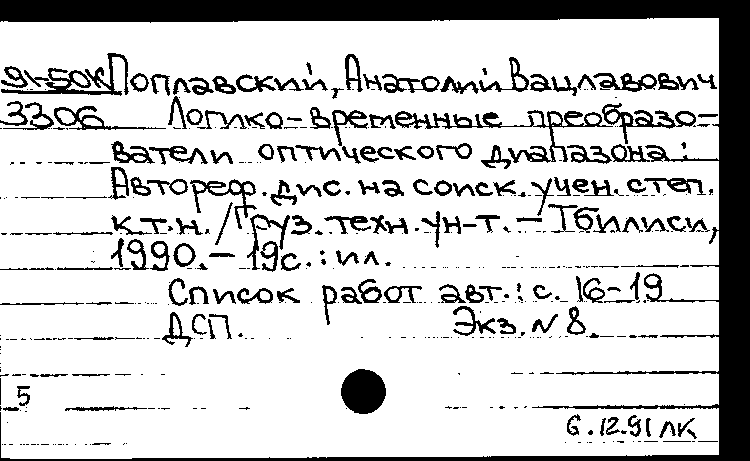 91-50К Поплавский, Анатолий Вацлавович
3306 Логико-временные преобразо-
ватели оптического диапазона:
Автореф. дис. на соиск. учен. степ.
к.т.н. / Груз. техн. ун-т. - Тбилиси,
1990. - 19 с. : ил.
Список работ авт.: с. 16-19
ДСП. Экз. N 8.
5
6.12.91 ЛК